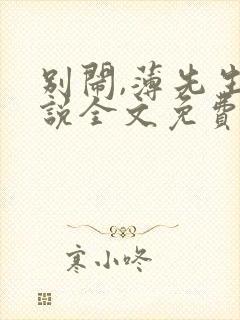 别闹,薄先生
說全文免費
寒小咚